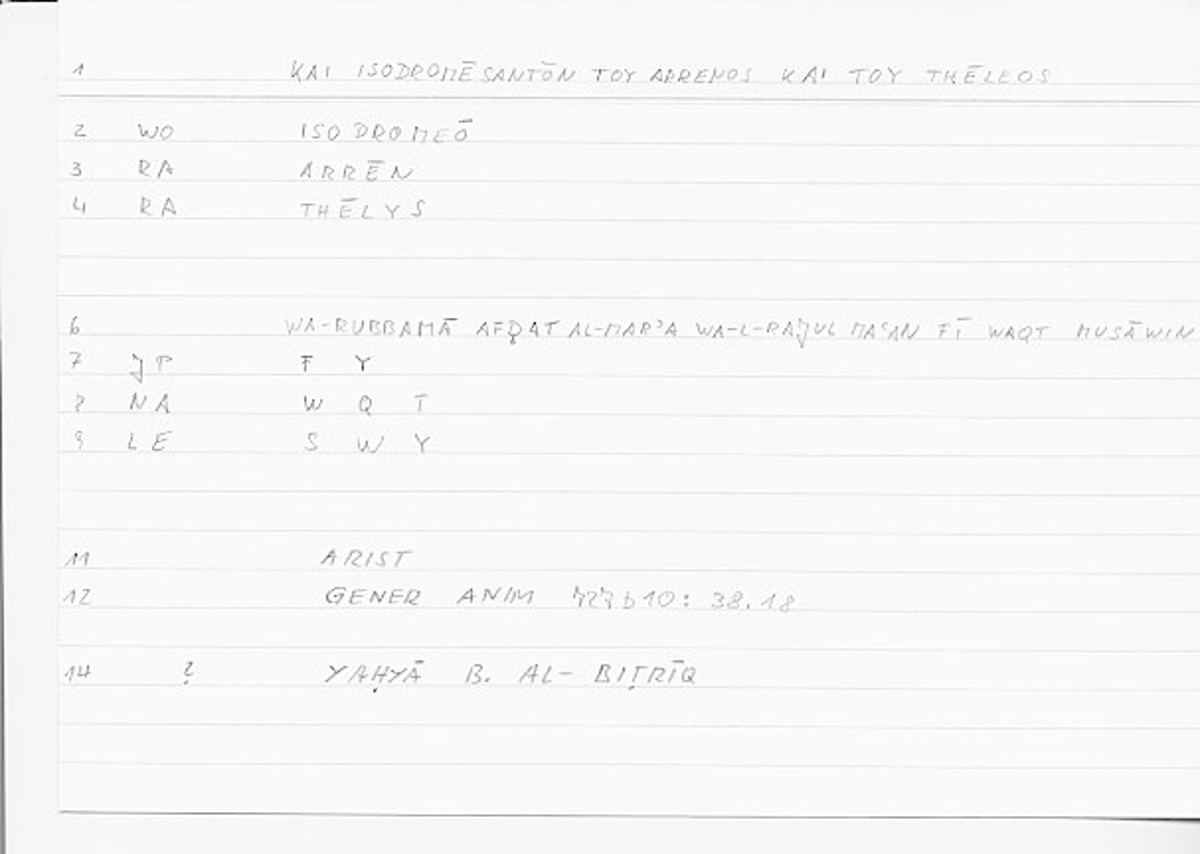 1 KAI ISODROMĒSANTŌN TOY ARRENOS KAI TOY THĒLEOS
2 WO ISODROMEŌ
3 RA ARRĒN
4 RA THĒLYS
6 WA-RUBBAMĀ AFḌAT AL-MARʾA WA-L-RAJUL MAʿAN FĪ WAQT MUSĀWIN
7 JP F Y
8 NA W Q T
9 LE S W Y
11 ARIST
12 GENER ANIM 727b10: 38.18
14 ? YAḤYĀ B. AL-BIṬRĪQ